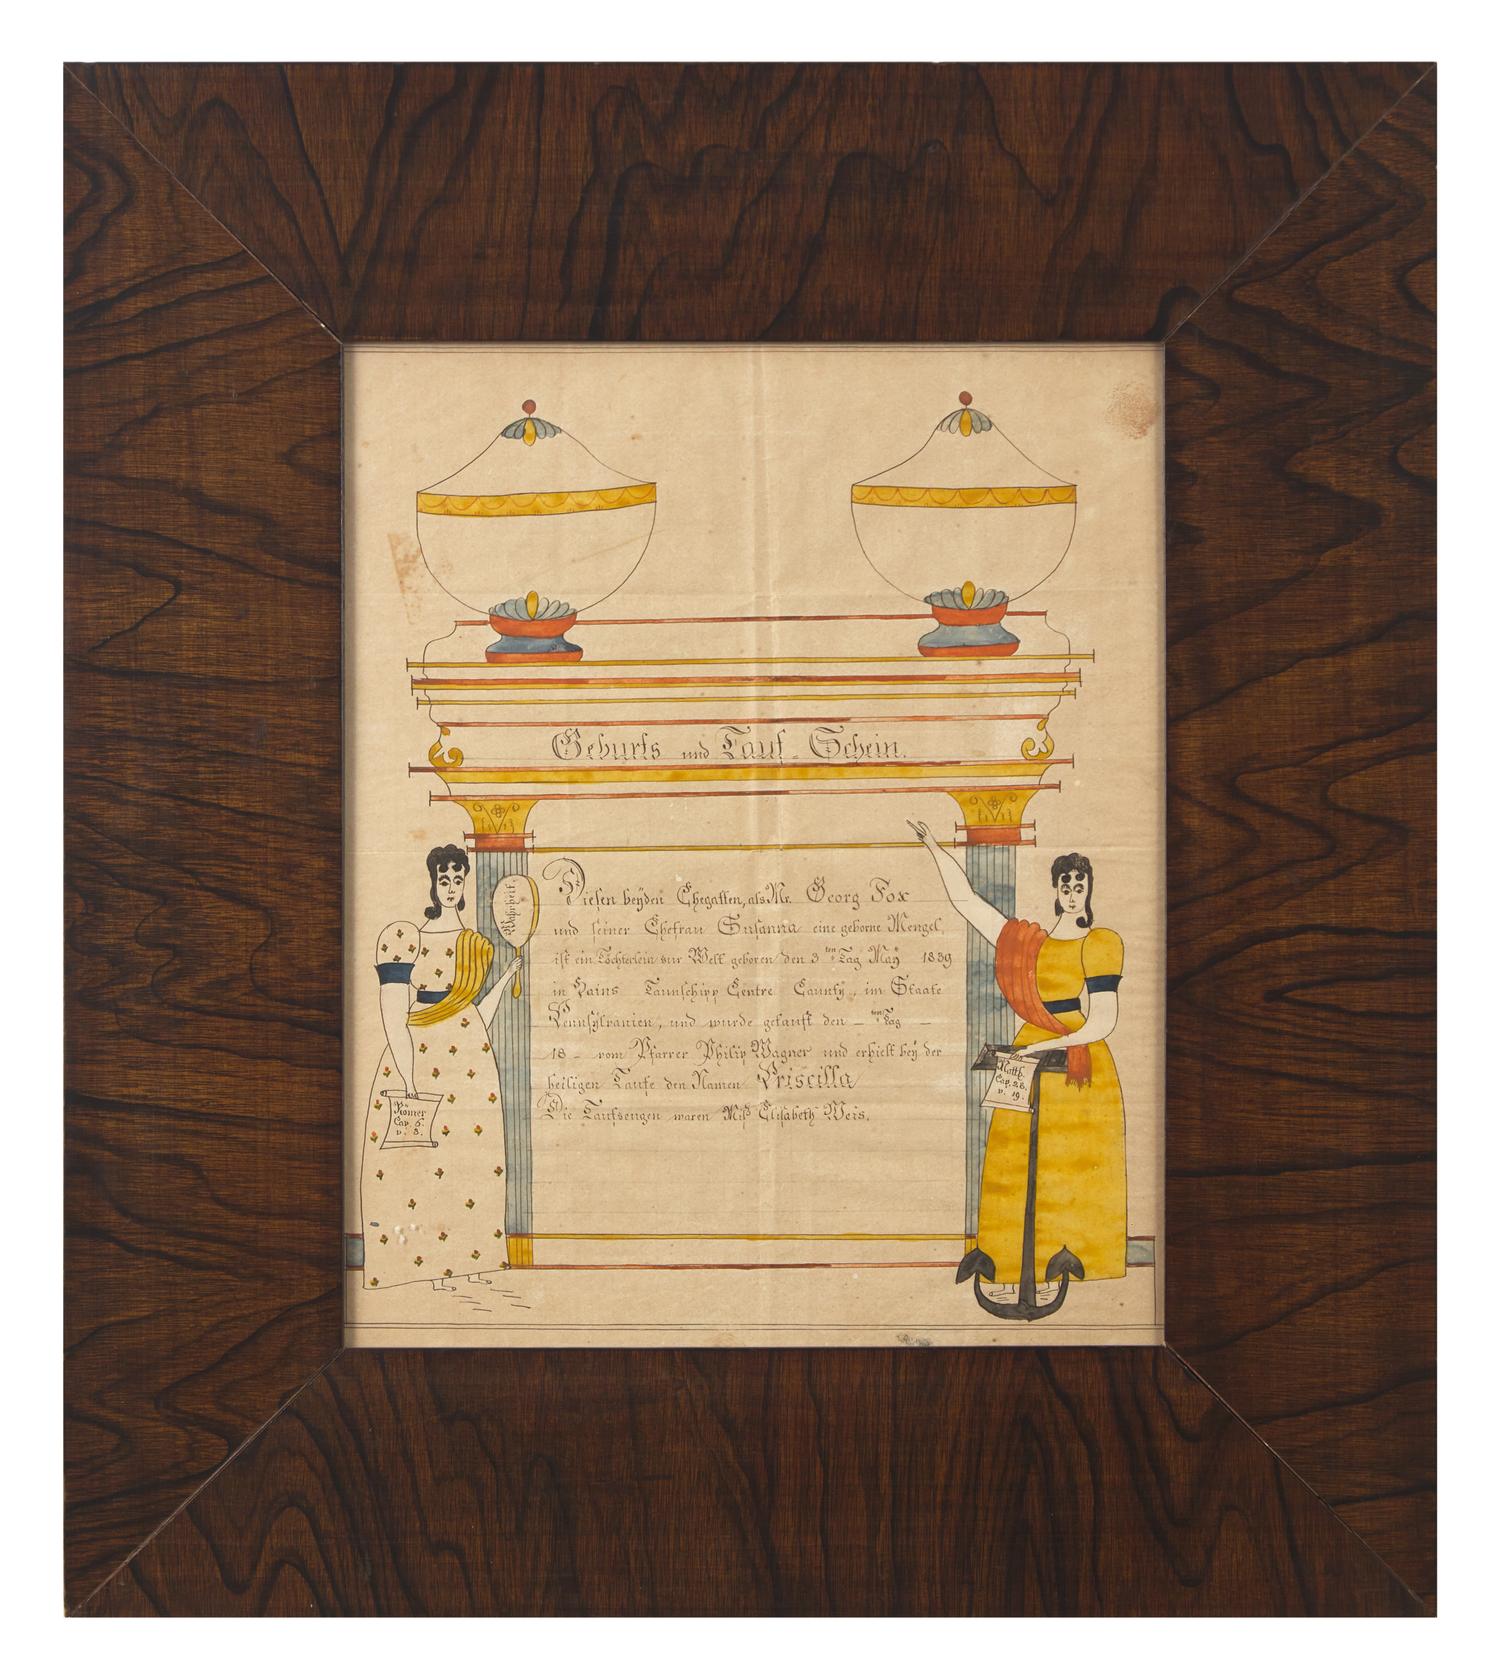 Geburts und Tauf-Schein.
Wahrheit.
Diesen beyden Ehegatten, als Mr. Georg Fox
und seiner Ehefrau Susanna eine geborne Mengel,
ist ein Töchterlein zur Welt geboren den 3ten Tag May 1839
in Hains Taunschipp Centre Caunty, im Staate
Pennsylvanien, und wurde getauft den – ten Tag –
18 – vom Pfarrer Philip Wagner und erhielt bey der
heiligen Taufe den Namen Priscilla
Die Taufzeugen waren Miß Elisabeth Weis.
Römer
Cap. 6.
v. 8.
Matth.
Cap. 28.
v. 19.